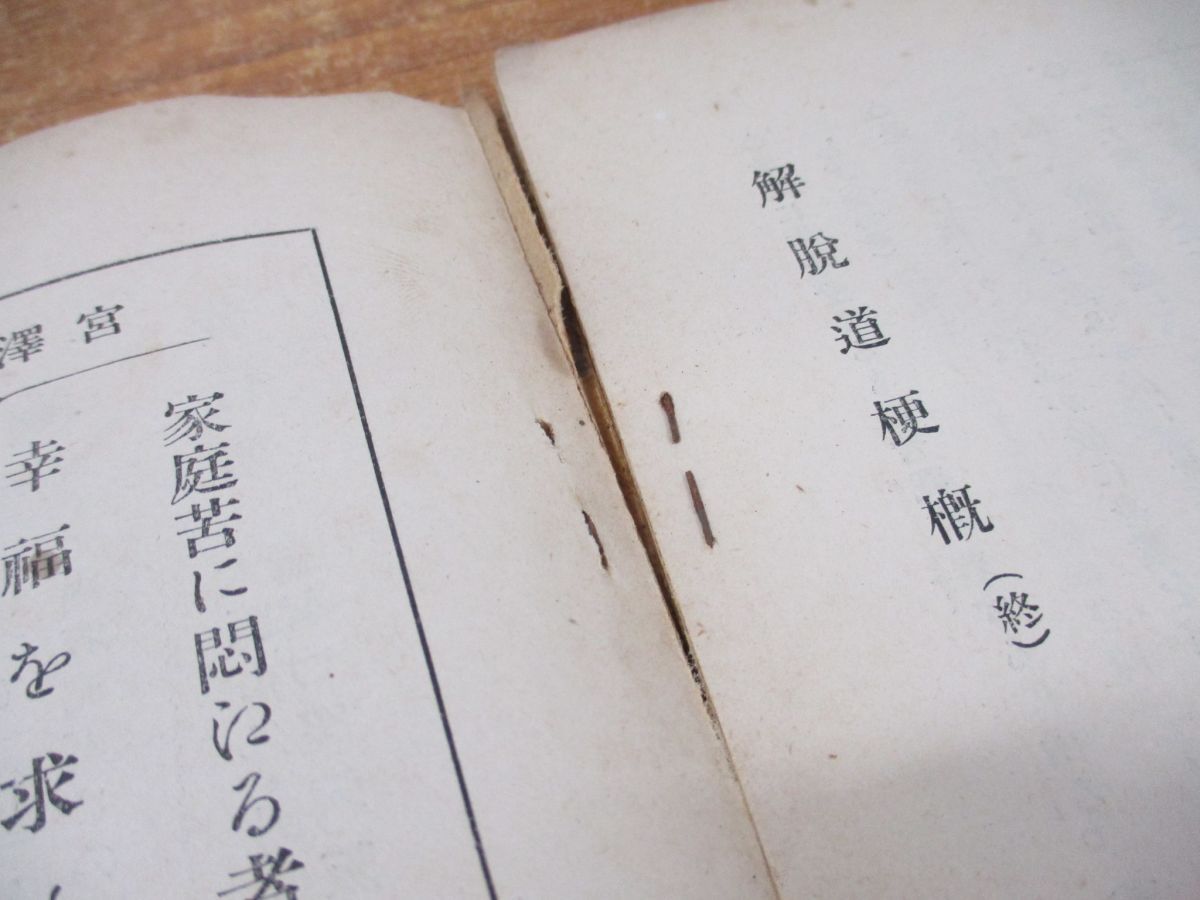 解脫道梗槪(終)
宮澤
家庭苦に悶江る者
幸福を求